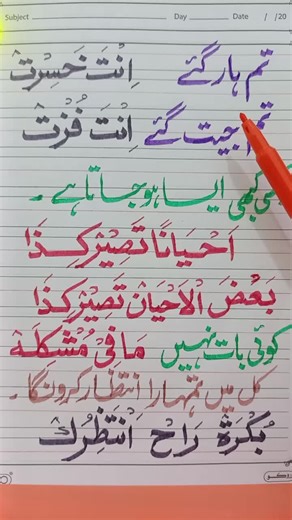 Subject Day Date / /20
تم ہار گئے اِنْتَ خَسِرْتْ
تم جیت گئے اِنْتَ فُزْتْ
کبھی ایسا ہو جاتا ہے۔
اَحْيَانًا تَصِيْرْ كِذَا
بَعْضَ الْاَحْيَانْ تَصِيْرْ كِذَا
کوئی بات نہیں مَا فِيْ مُشْكِلَةْ
کل میں تمہارا انتظار کروں گا۔
بُكْرَةْ رَاحْ اَنْتَظِرُكْ